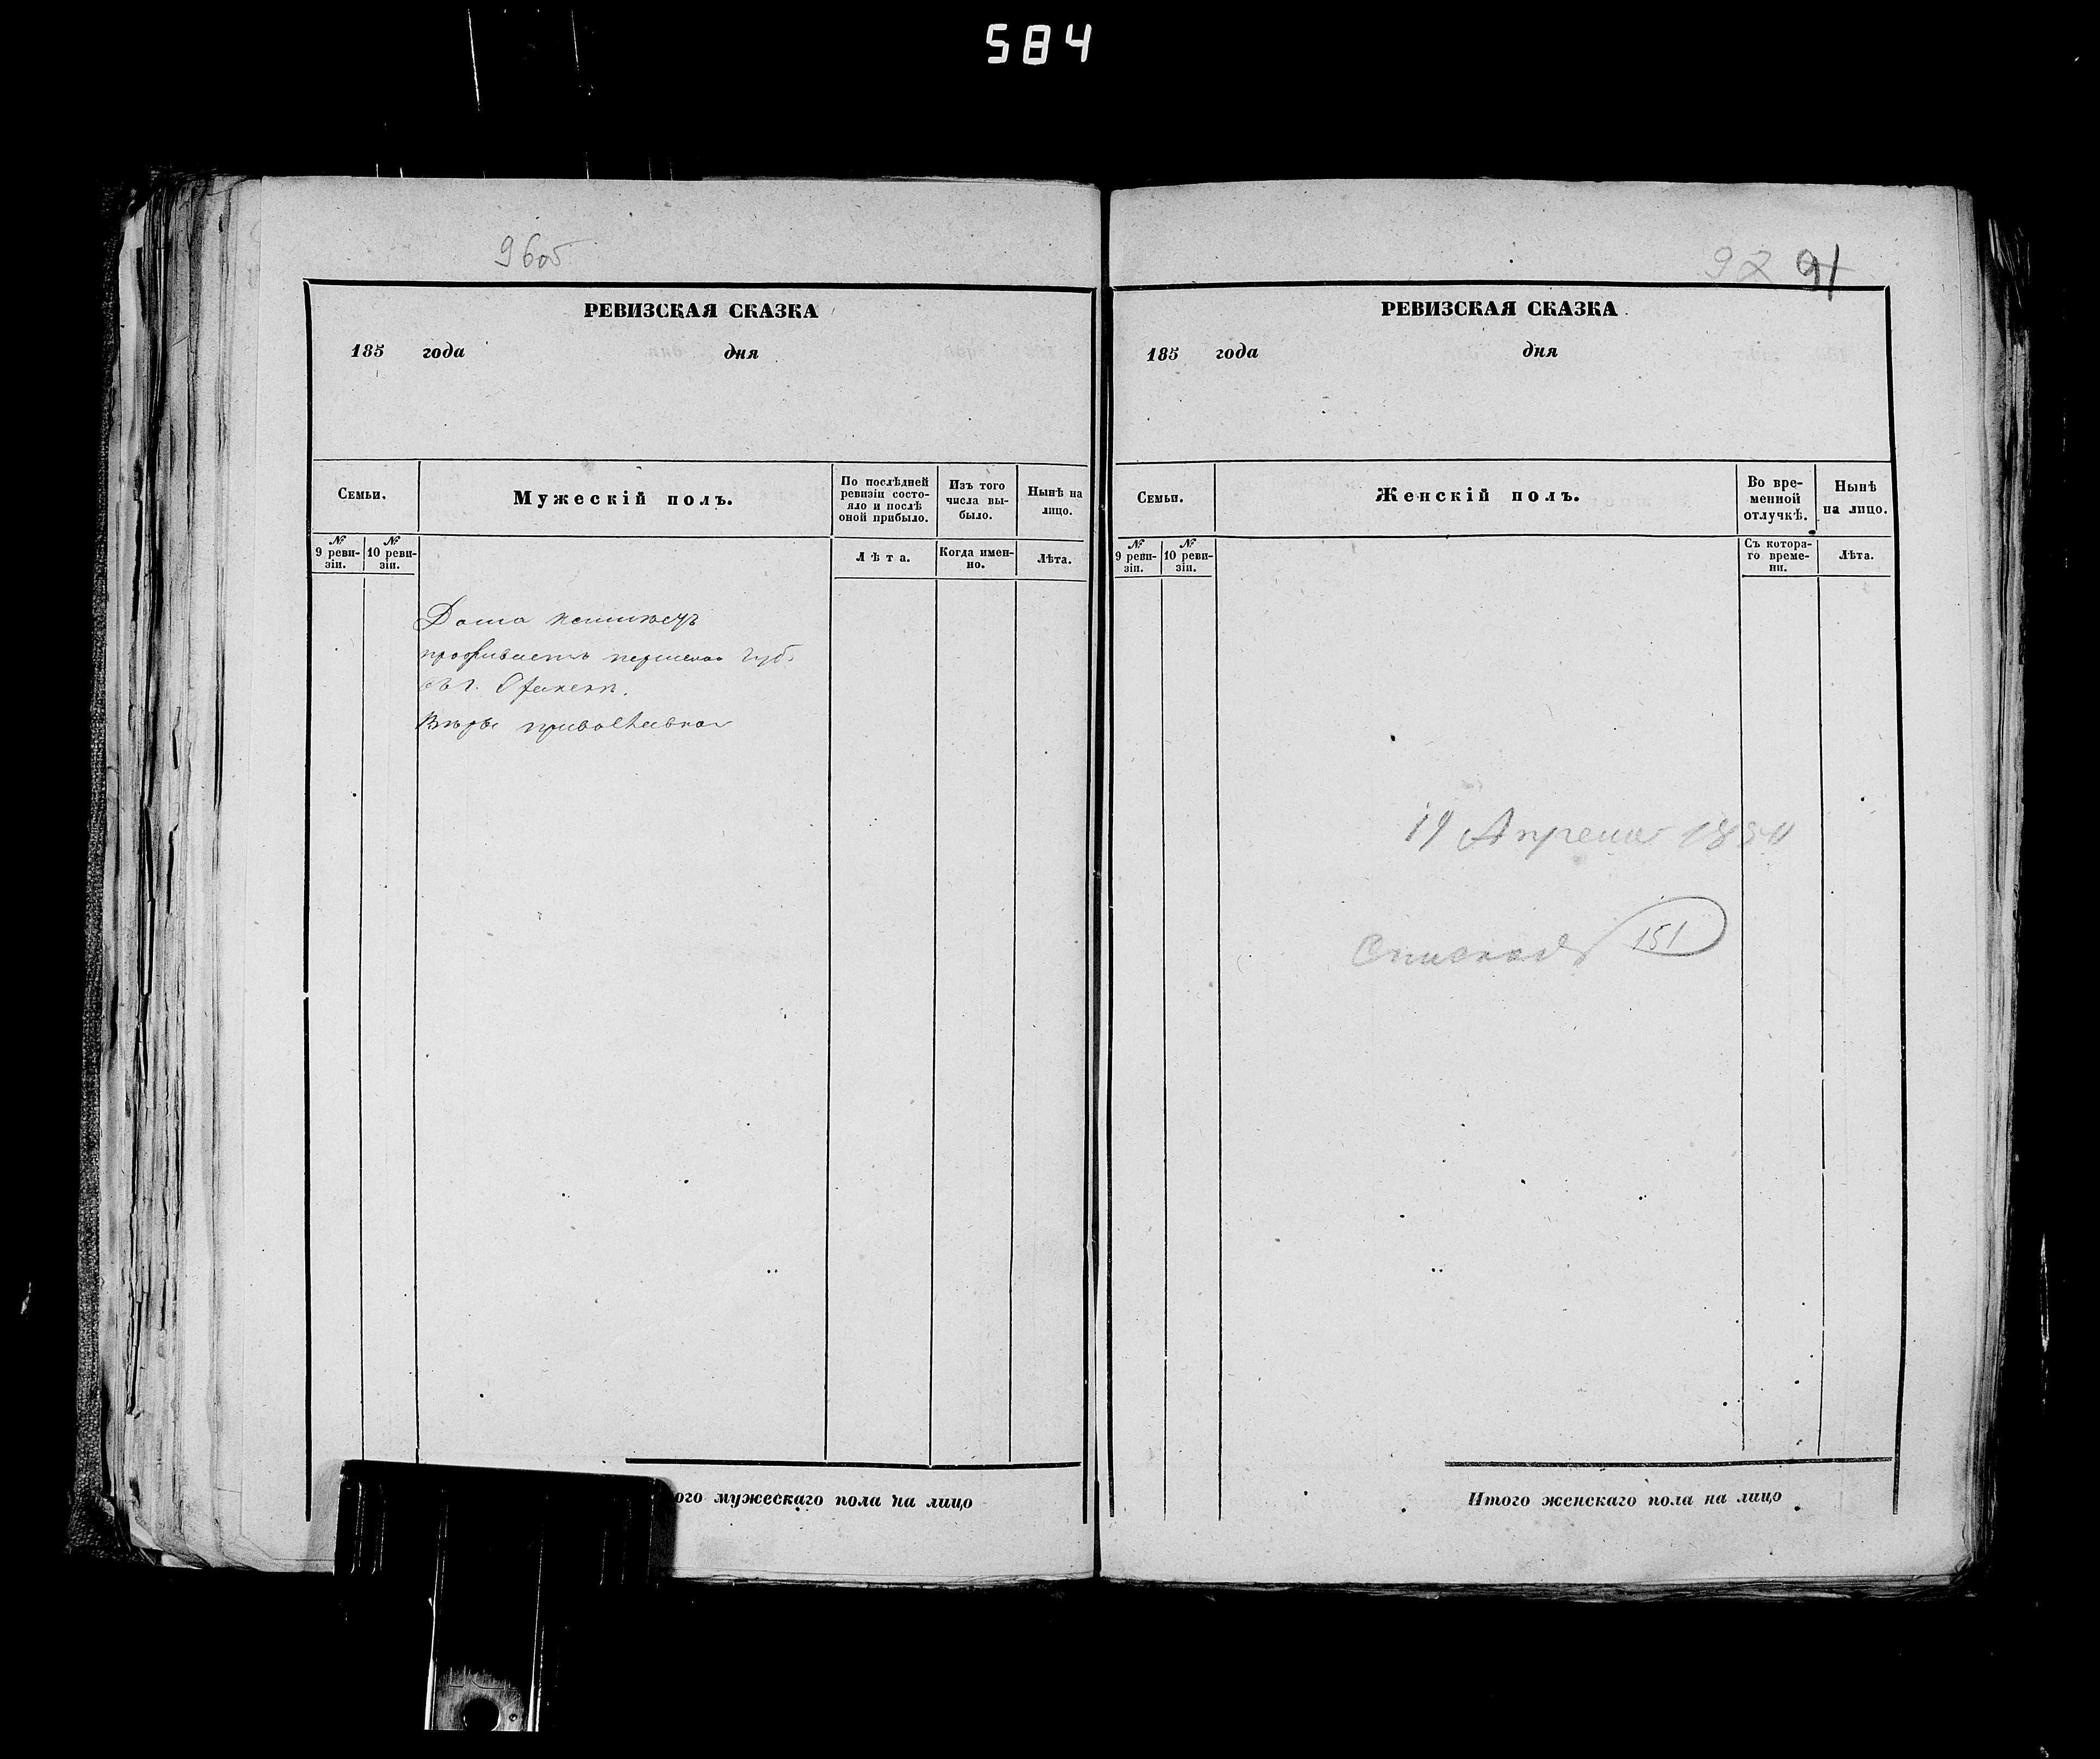 584
96об
РЕВИЗСКАЯ СКАЗКА
185 года дня
Семьи.
Мужескій полъ.
По послѣдней ревизіи состо-
яло и послѣ оной прибыло.
Изъ того числа вы-
было.
Нынѣ на лицо.
№ 9 реви-
зіи.
№ 10 реви-
зіи.
Лѣта.
Когда имен-
но.
Лѣта.
проживаетъ губ.
въ г.
ого мужескаго пола на лицо
97 91
РЕВИЗСКАЯ СКАЗКА
185 года дня
Семьи.
Женскій полъ.
Во вре-
менной отлучкѣ.
Нынѣ на лицо.
№ 9 реви-
зіи.
№ 10 реви-
зіи.
Съ котора-
го време-
ни.
Лѣта.
19 Апреля
151
Итого женскаго пола на лицо